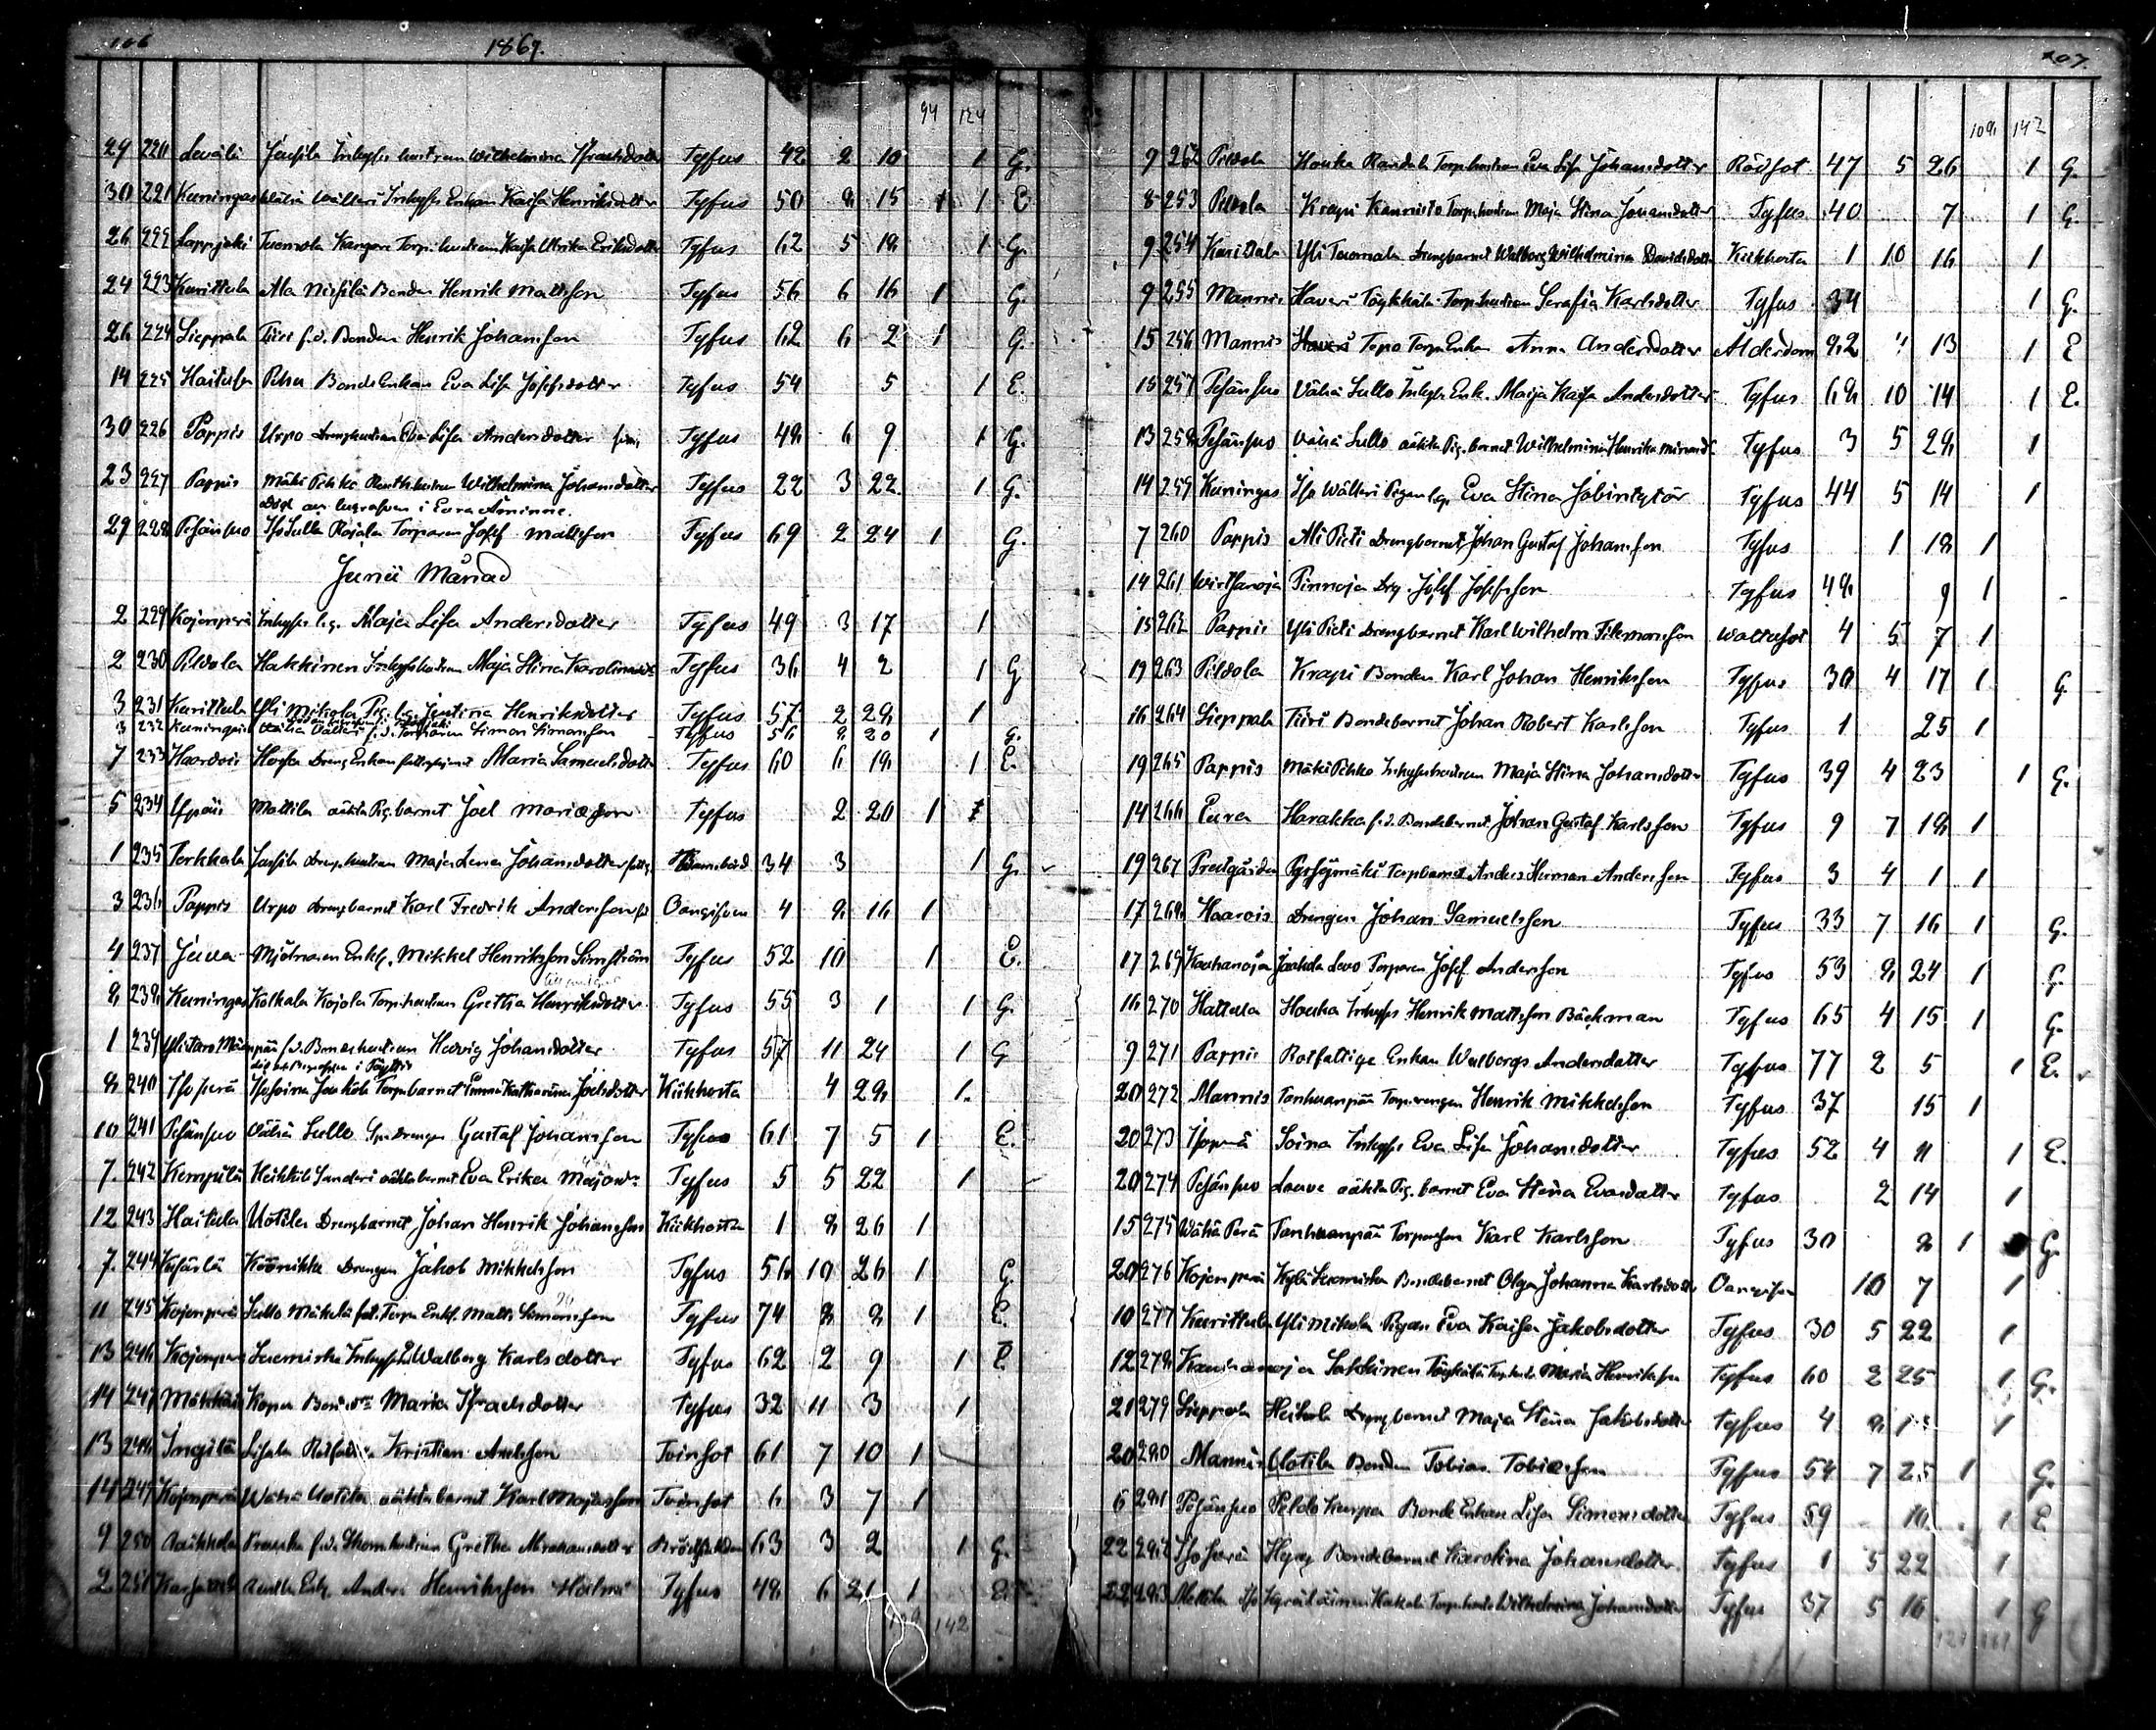 106 1867.
94 124
29 220 Levälä Jussila Inhyses hustrun Wilhelmina Israelsdotter Tyfus 42 2 10 1 G.
30 221 Kuningas Wähä Wälläri Inhyses Enkan Kaisa Henriksdotter Tyfus 50 8 15 1 E
26 222 Lappijoki Tuomola Kangare Torp. hustrun Kaisa Ulrika Eriksdotter Tyfus 62 5 18 1 G.
24 223 Kurittula Ala Nissilä Bonden Henrik Mattsson Tyfus 56 6 16 1 G.
26 224 Lieppala Tiiri f.d. Bonden Henrik Johansson Tyfus 62 6 2 1 G.
14 225 Haitula Bonde Enkan Eva Lisa Josefsdotter Tyfus 54 5 1 E.
30 226 Pappis Urpo Drenghustrun Eva Lisa Andersdotter Tyfus 48 6 9 1 G.
23 227 Pappis Mäki Pihko hustrun Wilhelmina Johansdotter Tyfus 22 3 22 1 G.
Död och begrafven i Eura Åminne.
29 228 Pesänsuo Iso Sullo Rajala Torparen Josef Mattsson Tyfus 69 2 24 1 G.
Junii Månad
2 229 Kojonperä Inhyses lg. Maja Lisa Andersdotter Tyfus 49 3 17 1
2 230 Pildola Hakkinen Inhyseshustrun Maja Stina Karolinasdr Tyfus 36 4 2 1 G
3 231 Kurittula Yli Mikola Pig. lg. Justina Henriksdotter Tyfus 57 2 28 1
3 232 Kuningas Wähä Wälläri f.d. Torparen Simon Simonsson Tyfus 56 8 20 1 G.
7 233 Haarois Enkan Maria Samuelsdotter Tyfus 60 6 18 1 E.
5 234 Ypäjä Mattila oäkta Pig. barnet Joel Mariæson Tyfus 2 20 1
1 235 Terkkala Jussila Drenghustrun Maja Lena Johansdotter Barnsbörd 34 3 1 G.
3 236 Pappis Urpo Drengbarnet Karl Fredrik Andersson Oangifven 4 8 16 1
4 237 Juva Mjölnaren Enkl. Mikkel Henriksson Tyfus 52 10 1 E.
8 238 Kuningas Kolkala Kojola Torp. hustrun Gretha Henriksdotter Tyfus 55 3 1 1 G.
1 239 Ylistaro f.d. Bondehustrun Hedvig Johansdotter Tyfus 57 11 24 1 G
8 240 Isoperä Iso Soina Jaakola Torpebarnet Emma Katharina Joelsdotter Kikhosta 4 28 1
10 241 Pesänsuo Wähä Sullo Drengen Gustaf Johansson Tyfus 61 7 5 1 E.
7 242 Kempilä Heikkilä Sanderi oäkta barnet Eva Erika Majasdr Tyfus 5 5 22 1
12 243 Haitula Uotila Drengbarnet Johan Henrik Johansson Kikhosta 1 8 26 1
7 244 Kisärlä Köönikkä Drengen Jakob Mikkelsson Tyfus 56 10 26 1 G.
11 245 Kojonperä Sullo Mäkelä Torp. Enkl. Matts Simonsson Tyfus 74 8 8 1 E.
13 246 Kojonperä Suomiska Inhyses Walborg Karlsdotter Tyfus 62 2 9 1 E.
14 247 Kopsa Maria Israelsdotter Tyfus 32 11 3 1
13 248 Ingilä Kristian Tvinsot 61 7 10 1
14 249 Kojonperä Wähä Uotila oäkta barnet Karl Majasson Tvinsot 6 3 7 1
9 250 f.d. hustrun Gretha Abrahamsdotter 63 3 2 1 G.
2 251 Enkl. Anders Henriksson Tyfus 48 6 21 1 E.
142
107.
109 142
9 252 Pildola Houka Randala Torp. hustrun Eva Lisa Johansdotter Rödsot 47 5 26 1 G.
8 253 Pildola Krapi Kannisto Torp. hustrun Maja Stina Johansdotter Tyfus 40 7 1 G.
9 254 Kurittula Yli Tuomola Drengbarnet Walborg Wilhelmina Davidsdotter Kikhosta 1 10 16 1
9 255 Mannis Haveri Töykkälä Torp. hustrun Serafia Karlsdotter Tyfus 34 1 G.
15 256 Mannis Topo Torp. Enkan Anna Andersdotter Ålderdom 82 13 1 E
15 257 Pesänsuo Wähä Sullo Inhys. Enk. Maija Kaisa Andersdotter Tyfus 68 10 14 1 E.
13 258 Pesänsuo Wähä Sullo oäkta Pig. barnet Wilhelmina Henrika Tyfus 3 5 28 1
14 259 Kuningas Iso Wälläri Pigan lg. Eva Stina Tyfus 44 5 14 1
7 260 Pappis Ali Pieti Drengbarnet Johan Gustaf Johansson Tyfus 1 18 1
14 261 Wirtsanoja Pinnoja Drg. Josef Josefsson Tyfus 48 9 1
15 262 Pappis Yli Pieti Drengbarnet Karl Wilhelm Filemonsson Wattusot 4 5 7 1
19 263 Pildola Krapi Bonden Karl Johan Henriksson Tyfus 30 4 17 1 G
16 264 Lieppala Tiiri Bondebarnet Johan Robert Karlsson Tyfus 1 25 1
19 265 Pappis Mäki Pihko Inhyseshustrun Maja Stina Johansdotter Tyfus 39 4 23 1 G.
14 266 Eura Harakka f.d. Bondebarnet Johan Gustaf Karlsson Tyfus 9 7 18 1
19 267 Prestgården Pyssymäki Torpbarnet Anders Herman Andersson Tyfus 3 4 1 1
17 268 Haarois Drengen Johan Samuelsson Tyfus 33 7 16 1 G.
17 269 Kauhanoja Jaakola Levo Torparen Josef Andersson Tyfus 53 8 24 1 G.
16 270 Hattula Houka Inhyses Henrik Mattsson Bäckman Tyfus 65 4 15 1 G.
9 271 Pappis Rotfattige Enkan Walborg Andersdotter Tyfus 77 2 5 1 E.
20 272 Mannis Tanhuanpää Torp. drengen Henrik Mikkelsson Tyfus 37 15 1
20 273 Isoperä Soina Inhyses Eva Lisa Johansdotter Tyfus 52 4 11 1 E.
20 274 Pesänsuo Louve oäkta Pig. barnet Eva Stina Evasdotter Tyfus 2 14 1
15 275 Wähä Perä Tanhuanpää Torparson Karl Karlsson Tyfus 30 8 1 G.
20 276 Kojonperä Kylä Suomiska Bondebarnet Olga Johanna Karlsdotter Oangifven 10 7 1
10 277 Kurittula Yli Mikola Pigan Eva Kaisa Jakobsdotter Tyfus 30 5 22 1
12 278 Kauhanoja Sakkinen Töykkälä Maria Tyfus 60 2 25 1 G.
21 279 Lieppala Heikola Drengbarnet Maja Stina Jakobsdotter Tyfus 4 8 1
20 280 Mannis Uotila Bonden Tobias Tobiæson Tyfus 54 7 25 1 G.
6 281 Pesänsuo Bonde Enkan Lisa Simonsdotter Tyfus 59 1 E
22 282 Isoperä Heppo Bondebarnet Karolina Johansdotter Tyfus 1 5 22 1
22 283 Mettilä Iso Wilhelmina Johansdotter Tyfus 37 5 16 1 G